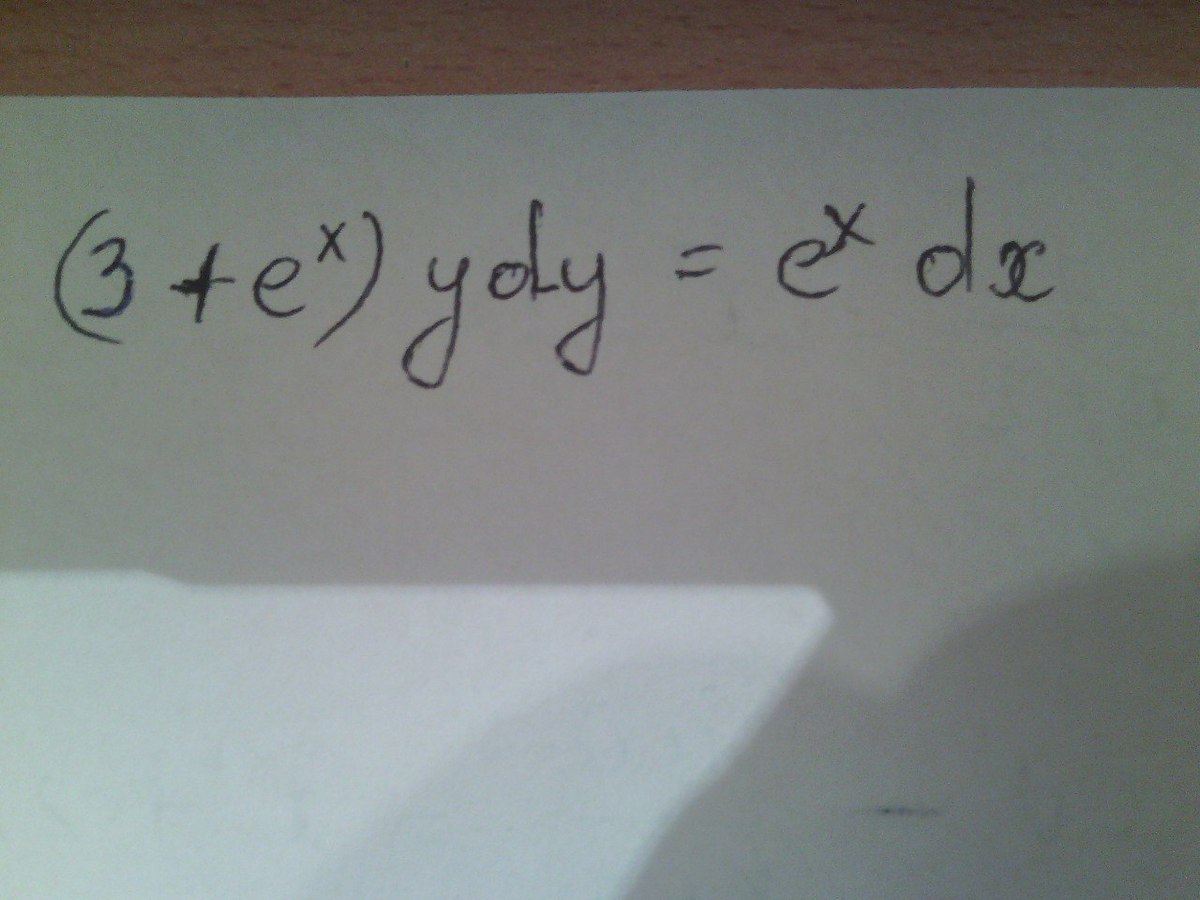 (3 + eˣ) y dy = eˣ dx